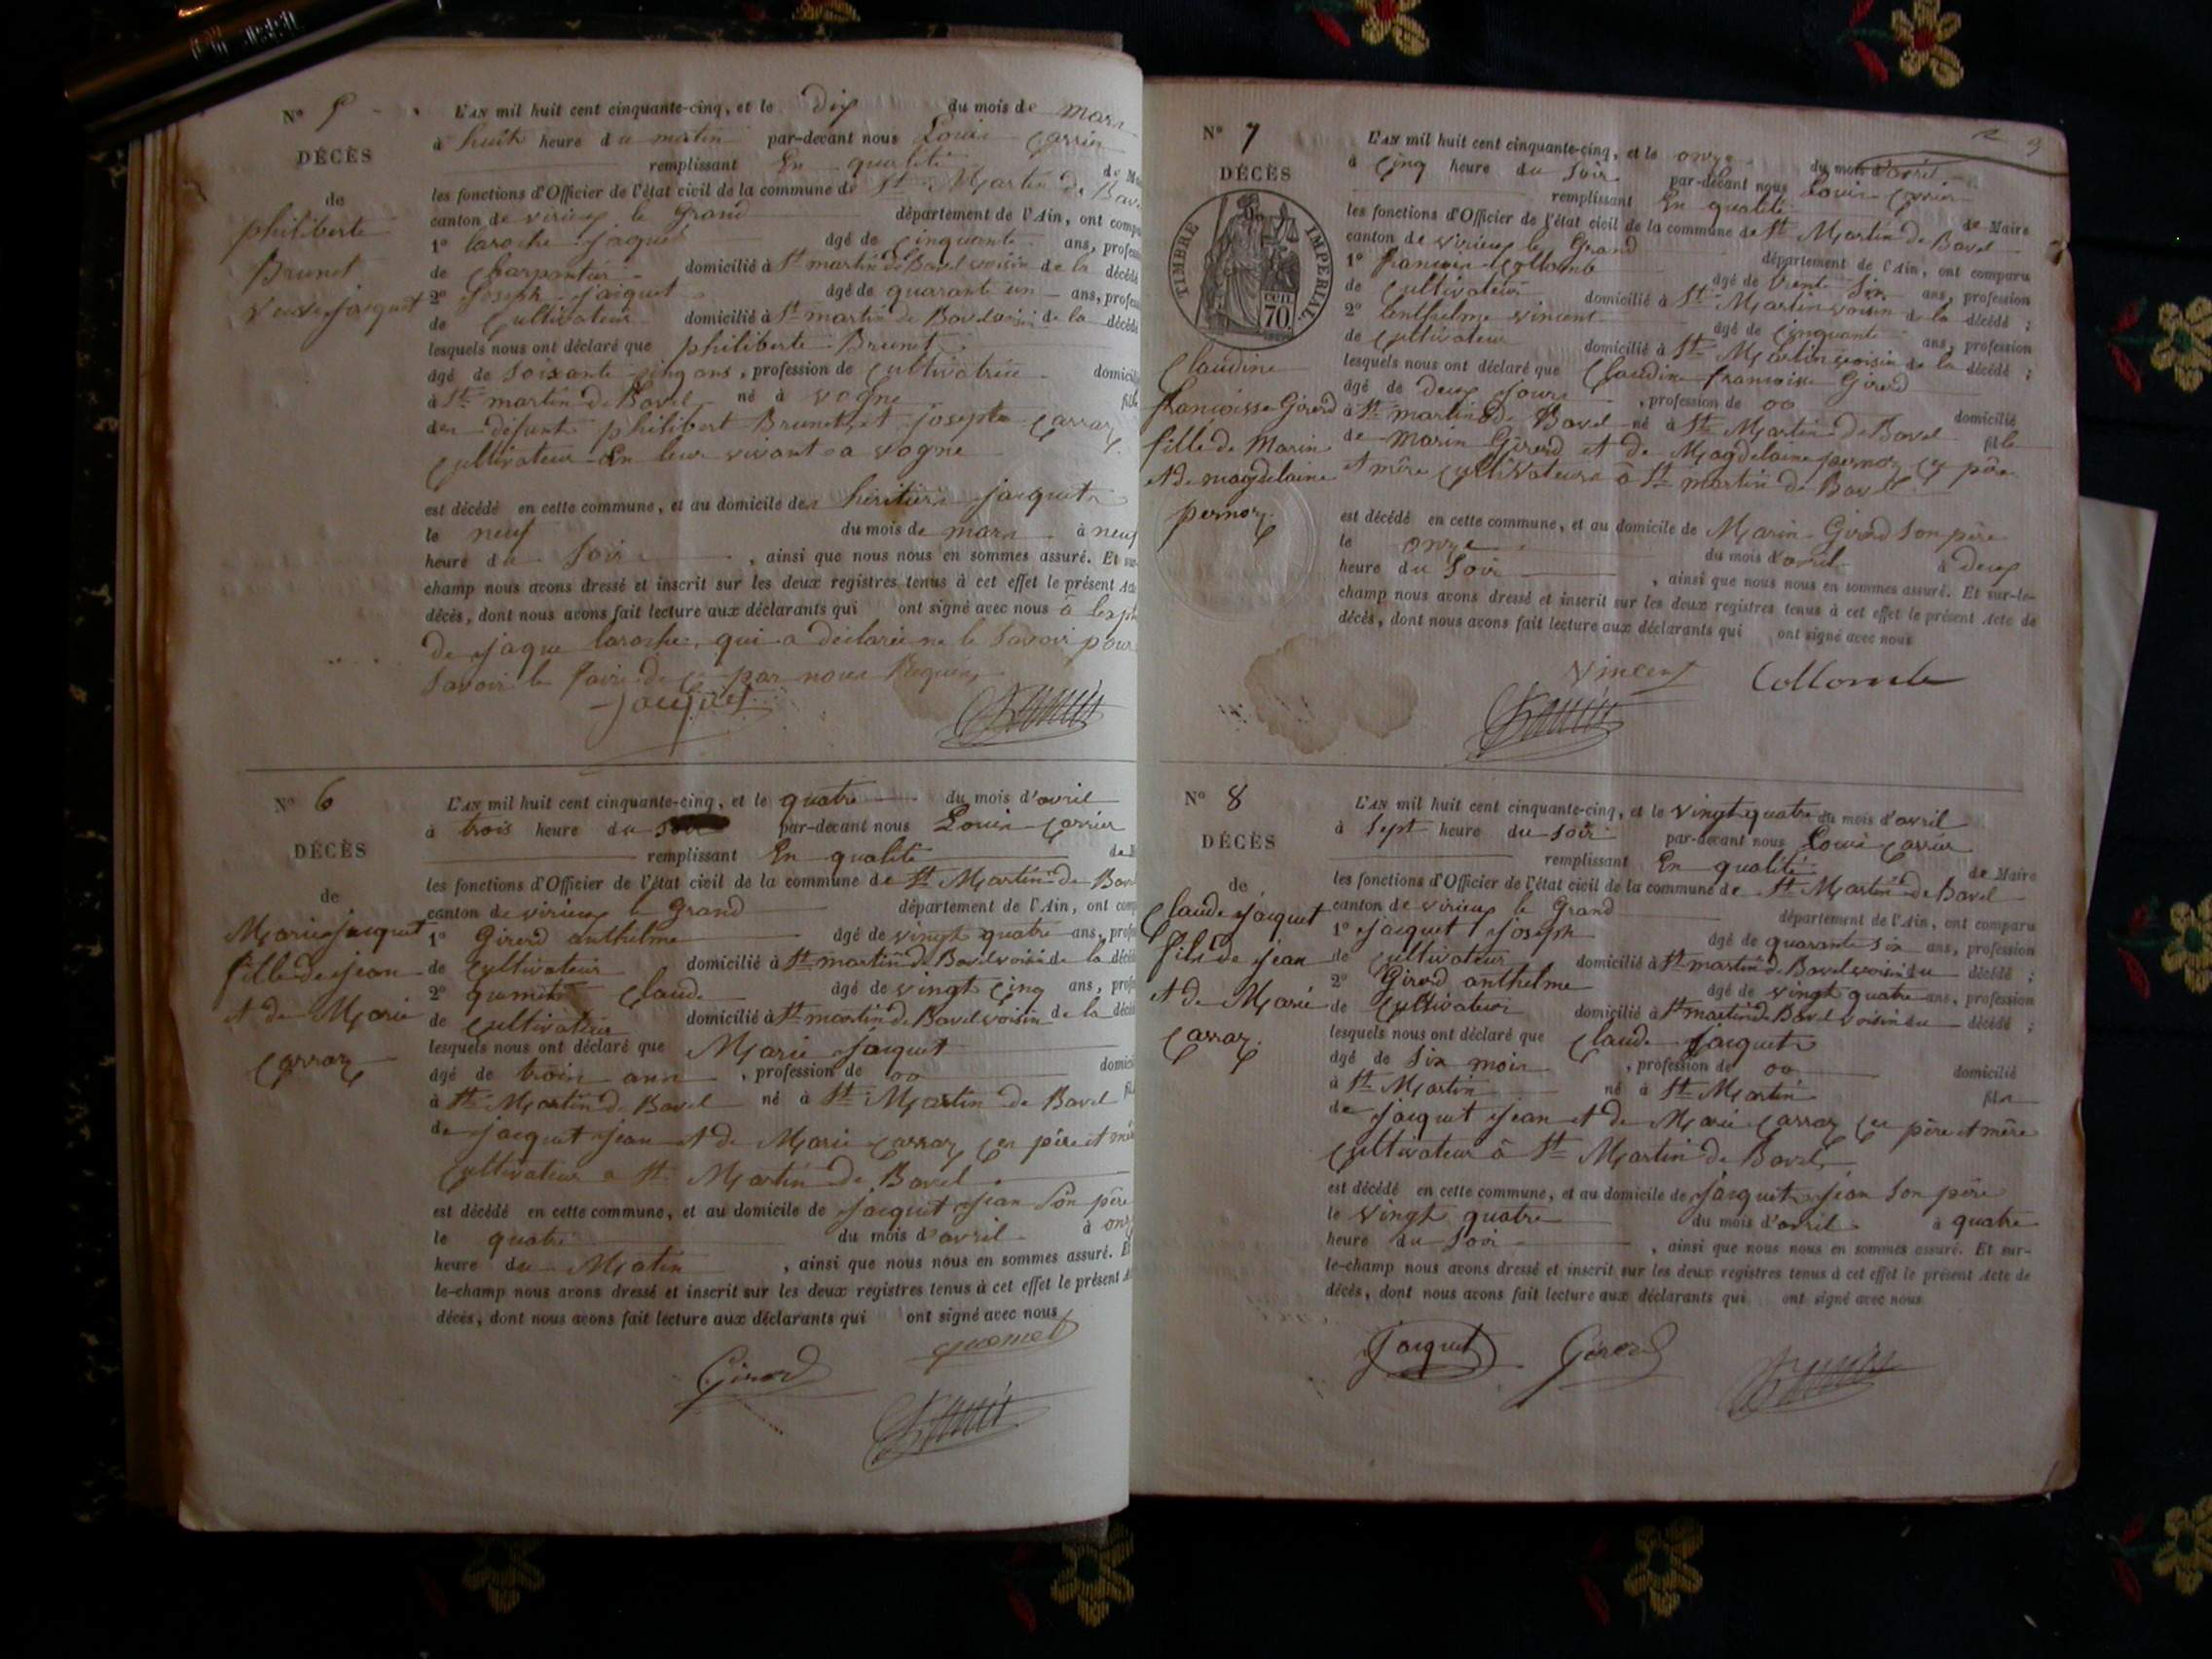 N° 5
DÉCÈS
de
philiberte
Brunet
veuve jacquet
L'AN mil huit cent cinquante-cinq, et le dix du mois de mars
à huit heure du matin par-devant nous Louis Carrier
remplissant En qualité de M
les fonctions d'Officier de l'état civil de la commune de St Martin de Bav
canton de virieux le Grand département de l'Ain, ont comp
1° laroche jaque âgé de cinquante ans, profess
de Charpentier domicilié à St martin de Bavel voisin de la décédé
2° Joseph jacquet âgé de quarante un ans, profess
de Cultivateur domicilié à St martin de Bavel voisin de la décédé
lesquels nous ont déclaré que philiberte Brunet
âgé de soixante cinq ans, profession de Cultivatrice domicili
à St martin de Bavel né à vogne fille
des défunt philibert Brunet, et josephe Carraz
Cultivateur En leur vivant a vogne
est décédé en cette commune, et au domicile des héritiers jacquet
le neuf du mois de mars à neuf
heure du Soir, ainsi que nous nous en sommes assuré. Et
champ nous avons dressé et inscrit sur les deux registres tenus à cet effet le présent Acte
décès, dont nous avons fait lecture aux déclarants qui ont signé avec nous à
de jaque laroche qui a déclarée ne le Savoir pour
Savoir le faire de Ce par nous Requis
Jacquet
N° 6
DÉCÈS
de
Marie Jacquet
fille de jean
et de Marie
Carraz
L'AN mil huit cent cinquante-cinq, et le quatre du mois d'avril
à trois heure du soir par-devant nous Louis Carrier
remplissant En qualité de M
les fonctions d'Officier de l'état civil de la commune de St Martin de Bav
canton de virieux le Grand département de l'Ain, ont comp
1° Girerd anthelme âgé de vingt quatre ans, prof
de Cultivateur domicilié à St martin de Bavel voisin de la décéd
2° quemet Claude âgé de vingt cinq ans, prof
de Cultivateur domicilié à St martin de Bavel voisin de la décéd
lesquels nous ont déclaré que Marie Jacquet
âgé de trois ans, profession de 00 domici
à St Martin de Bavel né à St Martin de Bavel
de Jacquet jean et de Marie Carraz Ces père et mère
Cultivateur a St Martin de Bavel
est décédé en cette commune, et au domicile de Jacquet Jean Son père
le quatre du mois d'avril à onz
heure du Matin, ainsi que nous nous en sommes assuré. Et
le-champ nous avons dressé et inscrit sur les deux registres tenus à cet effet le présent
décès, dont nous avons fait lecture aux déclarants qui ont signé avec nous
quemet
Girerd
N° 7
DÉCÈS
TIMBRE IMPERIAL
CEN. 70
Claudine
françoisse Girerd
fille de Marin
et de magdelaine
pernoz
L'AN mil huit cent cinquante-cinq, et le onze du mois d'avril
à Cinq heure du Soir par-devant nous Louis Carrier
remplissant En qualité de Maire
les fonctions d'Officier de l'état civil de la commune de St Martin de Bavel
canton de virieux le Grand département de l'Ain, ont comparu
1° francois Collomb âgé de trente Six ans, profession
de Cultivateur domicilié à St Martin voisin de la décédé ;
2° Centhelme vincent âgé de Cinquante ans, profession
de Cultivateur domicilié à St Martin voisin de la décédé ;
lesquels nous ont déclaré que Claudine francoisse Girerd
âgé de deux jours, profession de 00 domicilié
à St martin de Bavel né à St Martin de Bavel fille
de marin Girerd et de Magdelaine pernoz Ces père
et mère Cultivateurs à St martin de Bavel
est décédé en cette commune, et au domicile de Marin Girerd Son père
le onze du mois d'avril à deux
heure du Soir, ainsi que nous nous en sommes assuré. Et sur-le-
champ nous avons dressé et inscrit sur les deux registres tenus à cet effet le présent Acte de
décès, dont nous avons fait lecture aux déclarants qui ont signé avec nous
Vincent Collomb
N° 8
DÉCÈS
de
Claude Jacquet
fils de Jean
et de Marie
Carraz
L'AN mil huit cent cinquante-cinq, et le vingt quatre du mois d'avril
à Sept heure du soir par-devant nous Louis Carrier
remplissant En qualité de Maire
les fonctions d'Officier de l'état civil de la commune de St Martin de Bavel
canton de virieux le Grand département de l'Ain, ont comparu
1° Jacquet Joseph âgé de quarante Six ans, profession
de Cultivateur domicilié à St martin de Bavel voisin du décédé ;
2° Girerd anthelme âgé de vingt quatre ans, profession
de Cultivateur domicilié à St martin de Bavel voisin du décédé ;
lesquels nous ont déclaré que Claude Jacquet
âgé de Six mois, profession de 00 domicilié
à St Martin né à St Martin fils
de Jacquet Jean et de Marie Carraz Ces père et mère
Cultivateur à St Martin de Bavel
est décédé en cette commune, et au domicile de Jacquet Jean Son père
le vingt quatre du mois d'avril à quatre
heure du Soir, ainsi que nous nous en sommes assuré. Et sur-
le-champ nous avons dressé et inscrit sur les deux registres tenus à cet effet le présent Acte de
décès, dont nous avons fait lecture aux déclarants qui ont signé avec nous
Jacquet Girerd